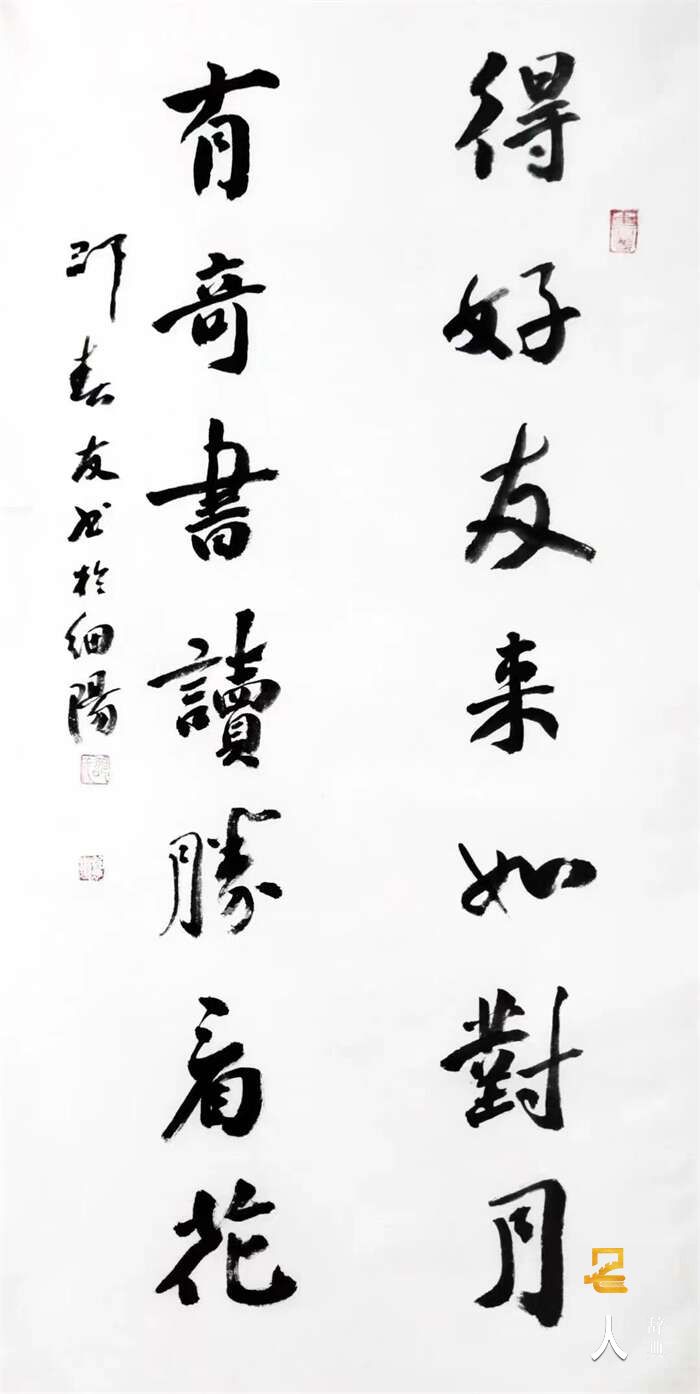 得好友来如對月
有奇書讀勝看花
邛春友书於细陽
人
辞典